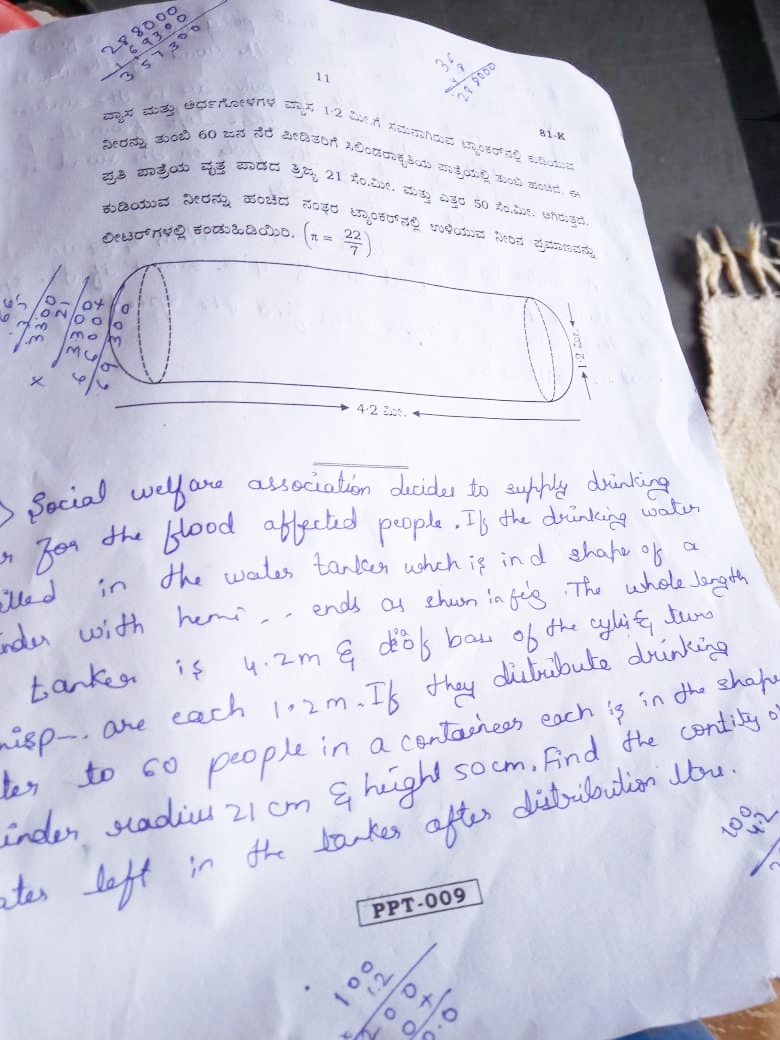 288000
69300
357300
36
8
288000
11
81-K
ವ್ಯಾಸ ಮತ್ತು ಅರ್ಧಗೋಳಗಳ ವ್ಯಾಸ 1·2 ಮೀ.ಗೆ ಸಮನಾಗಿರುವ ಟ್ಯಾಂಕರ್‌ನಲ್ಲಿ ಕುಡಿಯುವ
ನೀರನ್ನು ತುಂಬಿ 60 ಜನ ನೆರೆ ಪೀಡಿತರಿಗೆ ಸಿಲಿಂಡರಾಕೃತಿಯ ಪಾತ್ರೆಯಲ್ಲಿ ತುಂಬಿ ಹಂಚಿದೆ. ಈ
ಪ್ರತಿ ಪಾತ್ರೆಯ ವೃತ್ತ ಪಾದದ ತ್ರಿಜ್ಯ 21 ಸೆಂ.ಮೀ. ಮತ್ತು ಎತ್ತರ 50 ಸೆಂ.ಮೀ. ಆಗಿರುತ್ತದೆ.
ಕುಡಿಯುವ ನೀರನ್ನು ಹಂಚಿದ ನಂತರ ಟ್ಯಾಂಕರ್‌ನಲ್ಲಿ ಉಳಿಯುವ ನೀರಿನ ಪ್ರಮಾಣವನ್ನು
ಲೀಟರ್‌ಗಳಲ್ಲಿ ಕಂಡುಹಿಡಿಯಿರಿ. (π = 22/7)
3300
21
3300
6600x
69300
1·2 ಮೀ.
4·2 ಮೀ.
Social welfare association decides to supply drinking
for the flood affected people. If the drinking water
in the water tanker whch is in d shape of a
with hemi .. ends as shwn in fig. The whole length
tanker is 4.2m & dia of base of the cyli & two
are each 1.2m. If they distribute drinking
to 60 people in a containers each is in the shape
radius 21 cm & height 50cm. Find the contity
left in the tanker after distribution
PPT-009
100
4.2
100
1.2
200